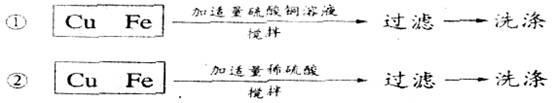 ① Cu Fe 加适量硫酸铜溶液 搅拌 过滤 洗涤
② Cu Fe 加适量稀硫酸 搅拌 过滤 洗涤